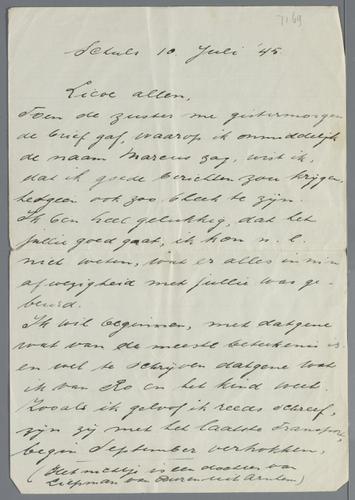 7169
Schuls 10 Juli '45
Lieve allen,
Toen de zuster me gistermorgen
de brief gaf, waarop ik onmiddelijk
de naam Marcus zag, wist ik,
dat ik goede berichten zou krijgen,
hetgeen ook zoo bleek te zijn.
Ik ben heel gelukkig, dat het
jullie goed gaat, ik kon n.l.
niet weten, wat er alles in m'n
afwezigheid met jullie was ge-
beurd.
Ik wil beginnen, met datgene
wat van de meeste betekenis is
en wel te schrijven datgene wat
ik van Ro en het kind weet.
Zooals ik geloof ik reeds schreef,
zijn zij met het laatste transport,
begin September vertrokken,
(Het nichtje is een dochter van
Liepman van Buren uit Arnhem)